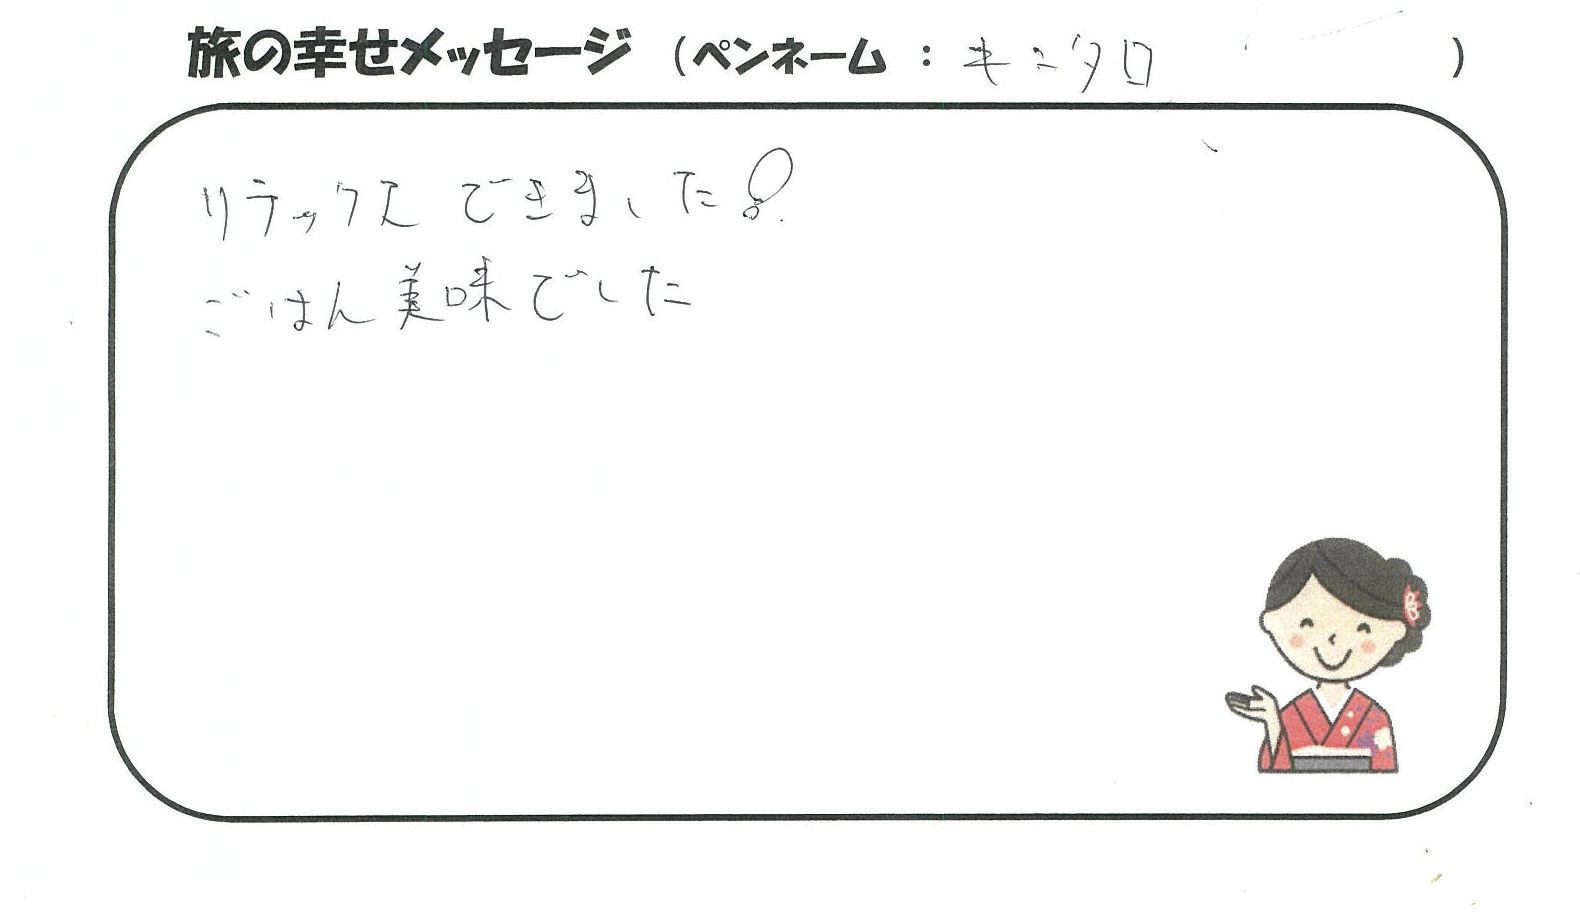 旅の幸せメッセージ (ペンネーム : キンタロ )
リラックスできました!
ごはん美味でした